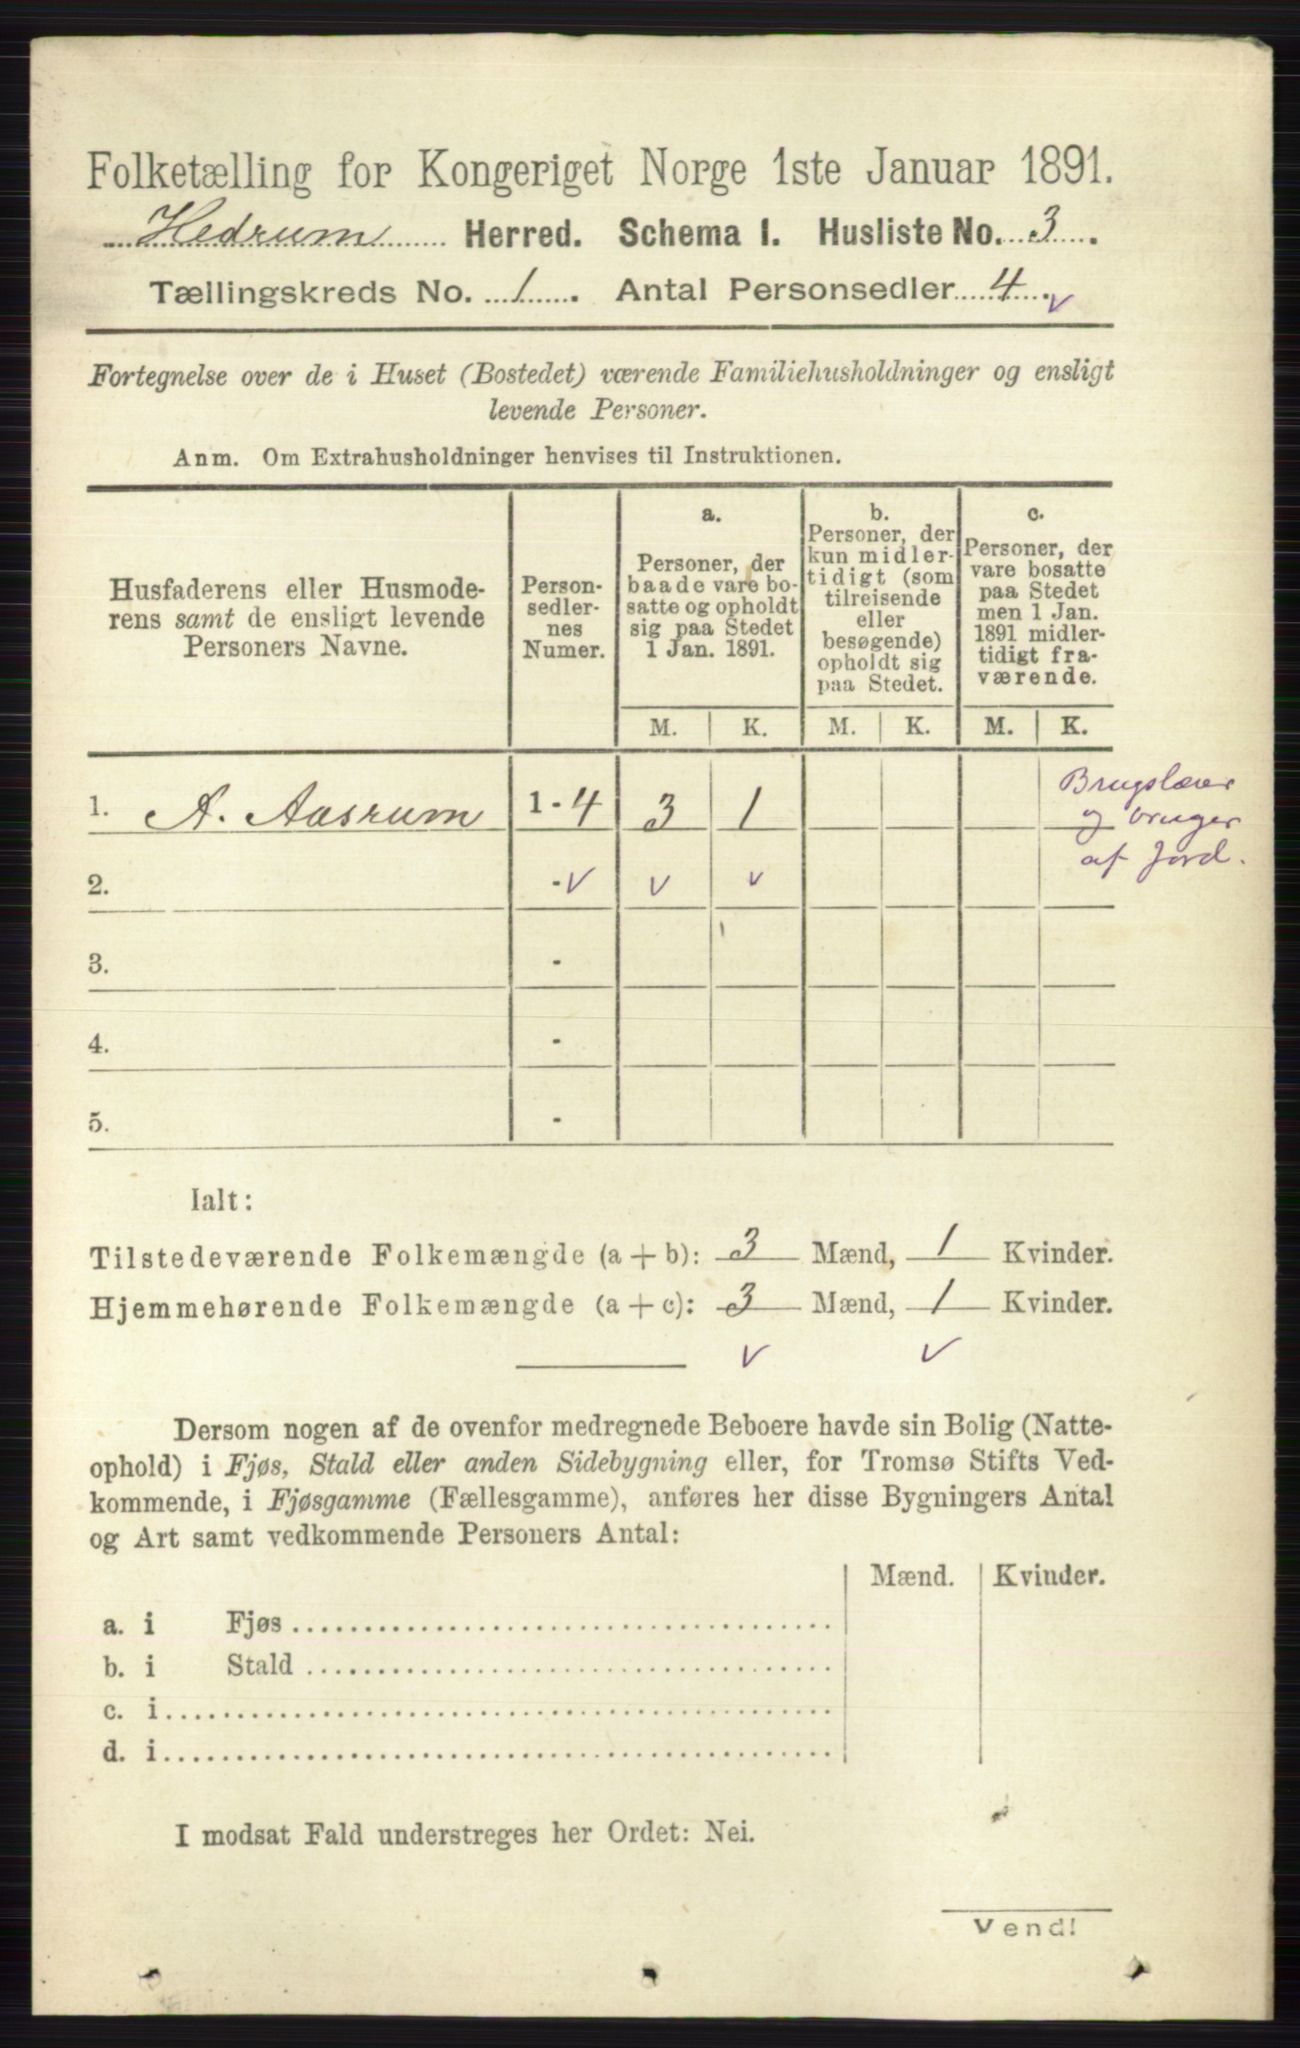 Folketælling for Kongeriget Norge 1ste Januar 1891.
Hedrum Herred. Schema I. Husliste No. 3.
Tællingskreds No. 1. Antal Personsedler 4. v
Fortegnelse over de i Huset (Bostedet) værende Familiehusholdninger og ensligt
levende Personer.
Anm. Om Extrahusholdninger henvises til Instruktionen.
Husfaderens eller Husmode-
rens samt de ensligt levende
Personers Navne.
Person-
sedler-
nes
Numer.
a.
Personer, der
baade vare bo-
satte og opholdt
sig paa Stedet
1 Jan. 1891.
b.
Personer, der
kun midler-
tidigt (som
tilreisende
eller
besøgende)
opholdt sig
paa Stedet.
c.
Personer, der
vare bosatte
paa Stedet
men 1 Jan.
1891 midler-
tidigt fra-
værende.
M. K. M. K. M. K.
1. A. Aasrum 1 - 4 3 1
Brugslæier
og bruger
af Jord.
2. - v v v
3. -
4. -
5. -
Ialt:
Tilstedeværende Folkemængde (a + b): 3 Mænd, 1 Kvinder.
Hjemmehørende Folkemængde (a + c): 3 Mænd, 1 Kvinder.
v v
Dersom nogen af de ovenfor medregnede Beboere havde sin Bolig (Natte-
ophold) i Fjøs, Stald eller anden Sidebygning eller, for Tromsø Stifts Ved-
kommende, i Fjøsgamme (Fællesgamme), anføres her disse Bygningers Antal
og Art samt vedkommende Personers Antal:
Mænd. Kvinder.
a. i Fjøs
b. i Stald
c. i
d. i
I modsat Fald understreges her Ordet: Nei.
Vend!